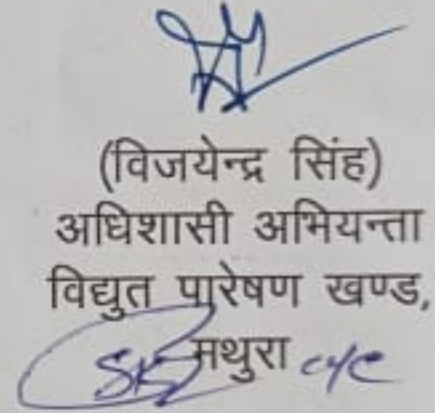 (विजयेन्द्र सिंह)
अधिशासी अभियन्ता
विद्युत पारेषण खण्ड,
मथुरा